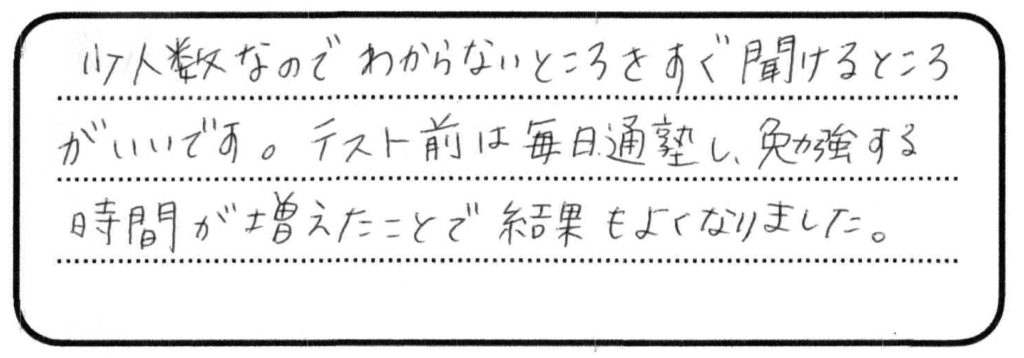 少人数なのでわからないところをすぐ聞けるところ
がいいです。テスト前は毎日通塾し、勉強する
時間が増えたことで結果もよくなりました。